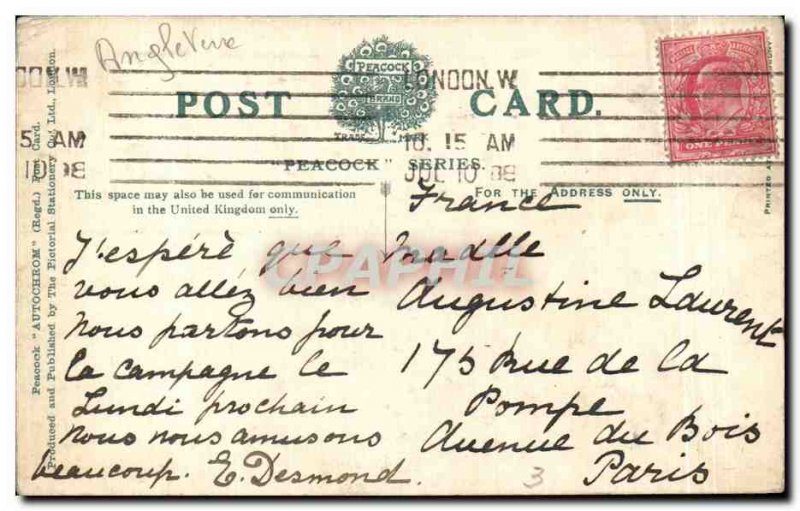 Angleterre
PEACOCK
BRAND
TRADE MARK
POST CARD.
"PEACOCK" SERIES.
LONDON.W
10. 15 AM
JUL 10 08
OON.W
5 AM
10 08
ONE PENNY
This space may also be used for communication
in the United Kingdom only.
FOR THE ADDRESS ONLY.
J'espérè que
vous alléz bien
nous partons pour
la campagne le
Lundi prochain
nous nous amusons
beaucoup. E. Desmond.
France
Madlle
Augustine Laurent
175 Rue de la
Pompe
Avenue du Bois
Paris
3
Peacock "AUTOCHROM" (Regd.) Post Card.
Produced and Published by The Pictorial Stationery Co., Ltd., London.
PRINTED AT
CPAPHIL